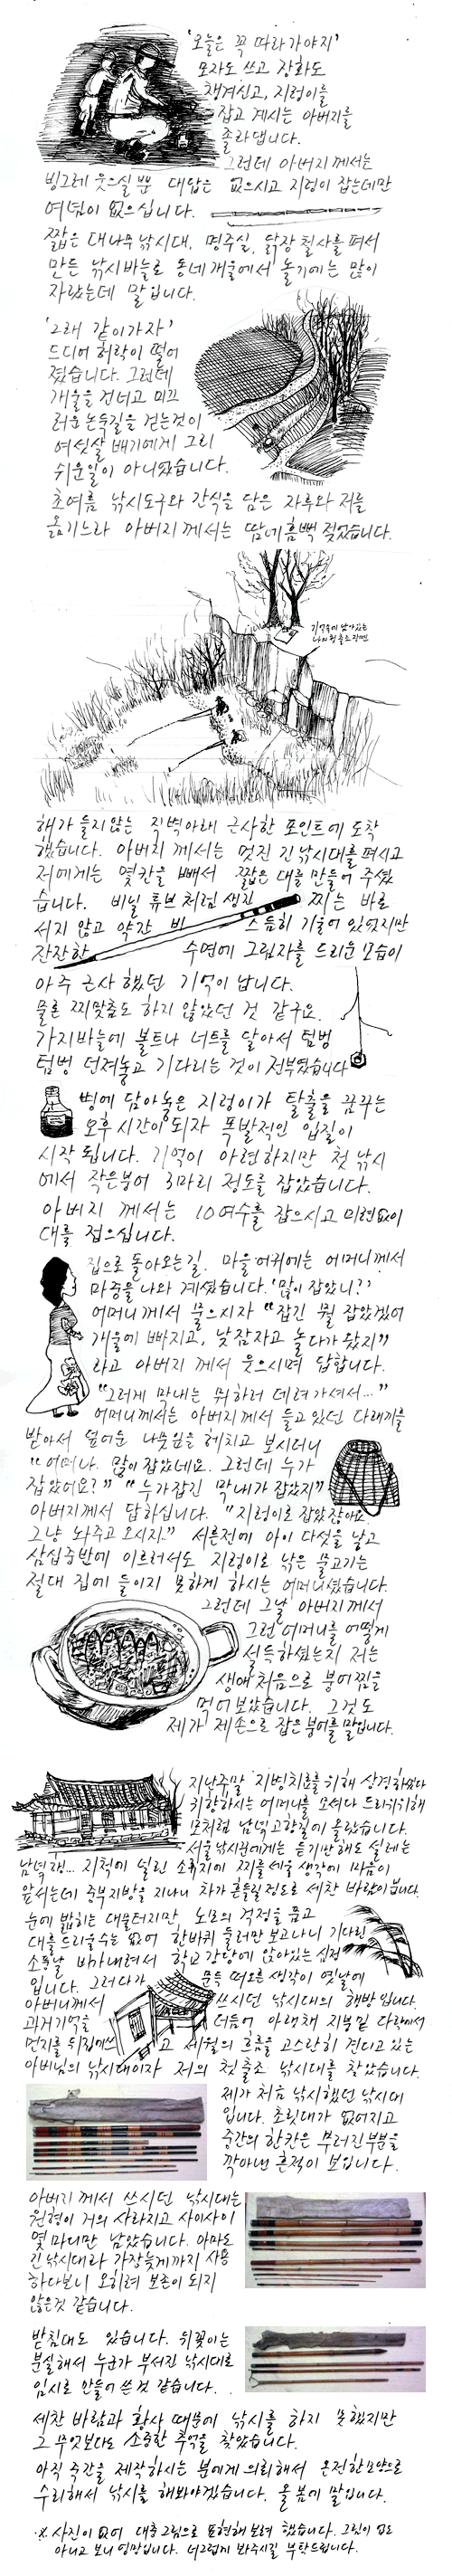 '오늘은 꼭 따라가야지'
모자도 쓰고 장화도
챙겨신고, 지렁이를
잡고 계시는 아버지를
졸라댑니다.
그런데 아버지께서는
빙그레 웃으실뿐 대답은 없으시고 지렁이 잡는데만
여념이 없으십니다.
짧은 대나무 낚시대, 명주실, 닭장 철사를 펴서
만든 낚시바늘로 동네개울에서 놀기에는 많이
자랐는데 말입니다.
'그래 같이가자'
드디어 허락이 떨어
졌습니다. 그런데
개울을 건너고 미끄
러운 논둑길을 걷는것이
여섯살 배기에게 그리
쉬운일이 아니였습니다.
초여름 낚시도구와 간식을 담은 자루와 저를
옮기느라 아버지께서는 땀에 흠뻑 젖었습니다.
기억속에 남아있는
나의 첫 출조 장면
해가 들지않는 직벽아래 근사한 포인트에 도착
했습니다. 아버지 께서는 멋진 긴 낚시대를 펴시고
저에게는 몇칸을 빼서 짧은 대를 만들어 주셨
습니다. 비닐 튜브처럼 생긴 찌는 바로
서지 않고 약간 비스듬히 기울어 있었지만
잔잔한 수면에 그림자를 드리운 모습이
아주 근사했던 기억이 납니다.
물론 찌맞춤도 하지 않았던 것 같구요.
가지바늘에 볼트나 너트를 달아서 텀벙
텀벙 던져놓고 기다리는 것이 전부였습니다
병에 담아놓은 지렁이가 탈출을 꿈꾸는
오후 시간이 되자 폭발적인 입질이
시작 됩니다. 기억이 아련하지만 첫 낚시
에서 작은붕어 3마리 정도를 잡았습니다.
아버지 께서는 10여수를 잡으시고 미련없이
대를 접으십니다.
집으로 돌아오는길. 마을어귀에는 어머니께서
마중을 나와 계셨습니다. '많이 잡았니?'
어머니께서 물으시자 "잡긴 뭘 잡았겠어
개울에 빠지고, 낮잠자고 놀다가 왔지"
라고 아버지 께서 웃으시며 답합니다.
"그러게 막내는 뭐하러 데려가셔서..."
어머니께서는 아버지께서 들고있던 다래끼를
받아서 덮어둔 나뭇잎을 헤치고 보시더니
"어머나. 많이 잡았네요. 그런데 누가
잡았어요?" "누가잡긴 막내가 잡았지"
아버지께서 답하십니다. "지렁이로 잡았잖아요.
그냥 놔주고 오시지." 서른전에 아이 다섯을 낳고
삼십중반에 이르러서도 지렁이로 낚은 물고기는
절대 집에 들이지 못하게 하시는 어머니셨습니다.
그런데 그날 아버지께서
그런 어머니를 어떻게
설득하셨는지 저는
생애 처음으로 붕어찜을
먹어보았습니다. 그것도
제가 제손으로 잡은 붕어를 말입니다.
지난주말 지병치료를 위해 상경하셨다
귀향하시는 어머니를 모셔다 드리기위해
모처럼 남녘고향길에 올랐습니다.
서울 낚시꾼에게는 듣기만해도 설레는
남녘행... 지척에 널린 소류지에 찌를세울 생각에 마음이
앞서는데 중부지방을 지나니 차가 흔들릴정도로 세찬 바람이 붑니다.
눈에 밟히는 대물터지만, 노모의 걱정을 품고
대를 드리울수는 없어 한바퀴 둘러만 보고나니 기다린
소풍날 비가내려서 학교강당에 앉아있는 심정
입니다. 그러다가 문득 떠오른 생각이 옛날에
아버니께서 쓰시던 낚시대의 행방입니다.
과거기억을 더듬어 아래채 지붕밑 다락에서
먼지를 뒤집어쓰고 세월의 흐름을 고스란히 견디고 있는
아버님의 낚시대이자 저의 첫출조 낚시대를 찾았습니다.
제가 처음 낚시했던 낚시대
입니다. 초릿대가 없어지고
중간의 한칸은 부러진부분을
깍아낸 흔적이 보입니다.
아버지 께서 쓰시던 낚시대는
원형이 거의 사라지고 사이사이
몇 마디만 남았습니다. 아마도
긴 낚시대라 가장늦게까지 사용
하다보니 오히려 보존이 되지
않은것 같습니다.
받침대도 있습니다. 뒤꽂이는
분실해서 누군가 부서진 낚시대로
임시로 만들어 쓴것 같습니다.
세찬 바람과 황사 때문에 낚시를 하지 못했지만
그 무엇보다도 소중한 추억을 찾았습니다.
아직 죽간을 제작하시는 분에게 의뢰해서 온전한모양으로
수리해서 낚시를 해봐야겠습니다. 올 봄에 말입니다.
※ 사진이 없어 대충 그림으로 표현해보려 했습니다. 그린이 없도
아니고 보니 엉망입니다. 너그럽게 봐주시길 부탁드립니다.